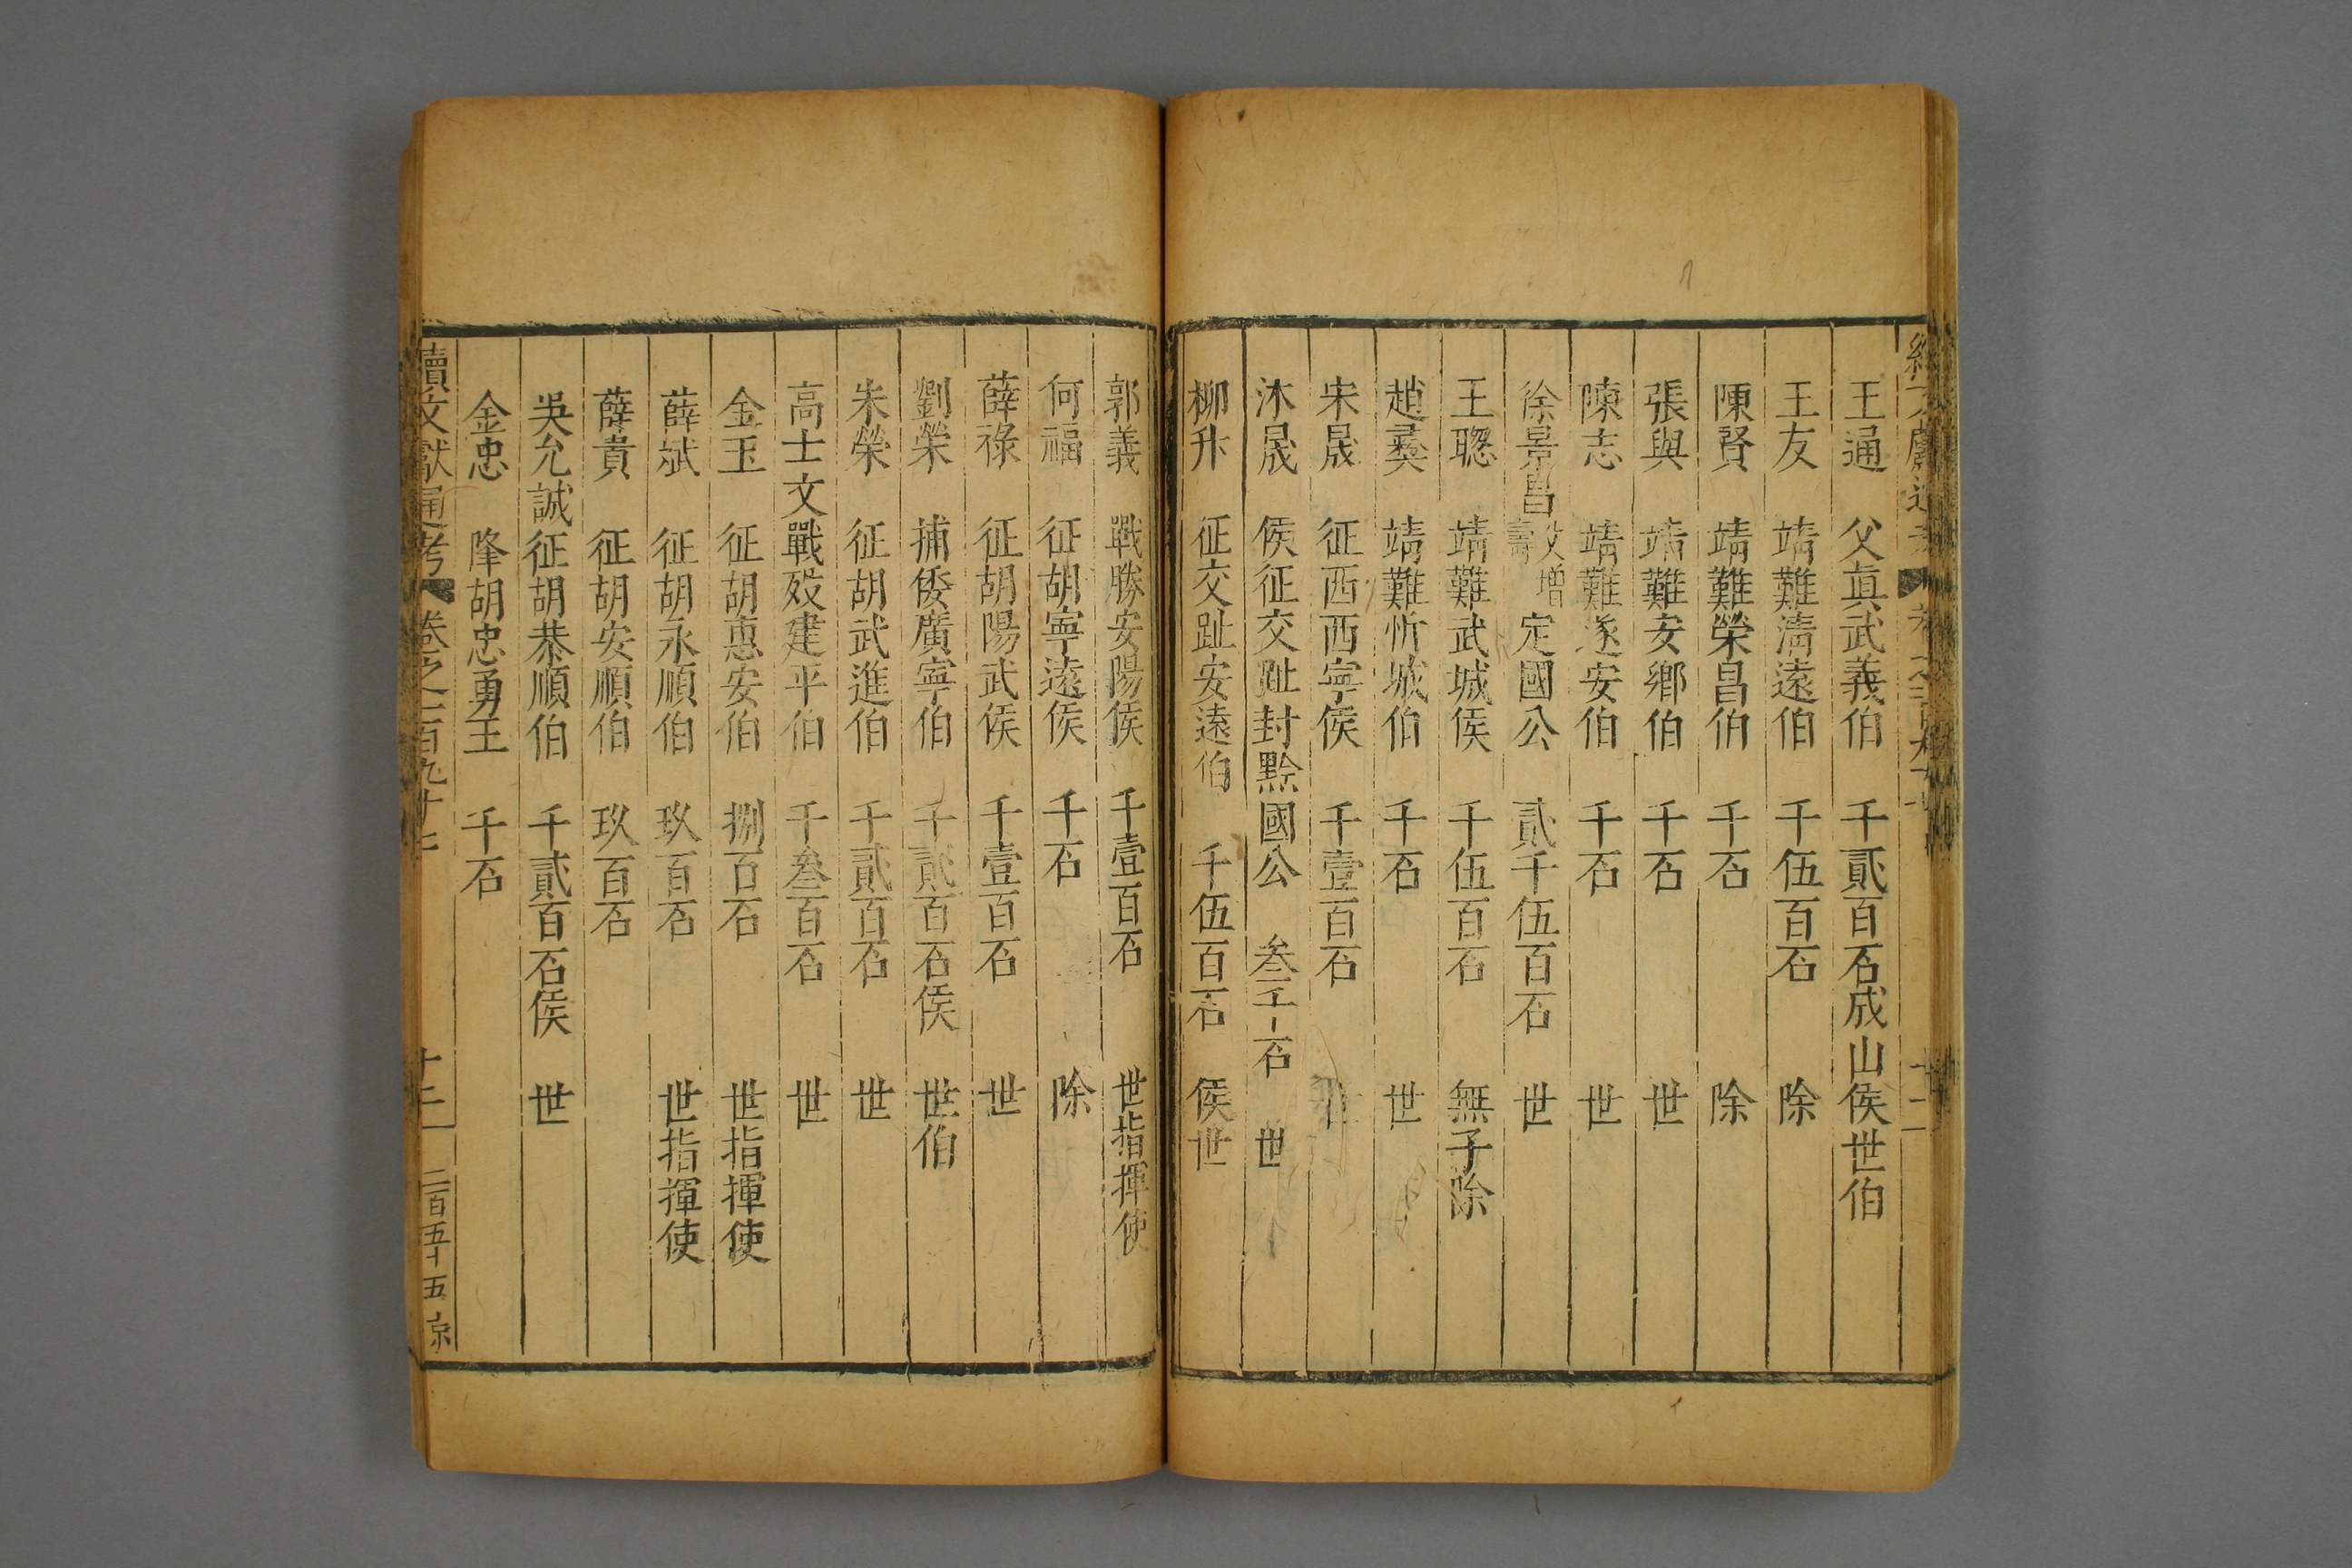 王通 父真武義伯 千貳百石成山侯世伯
王友 靖難清遠伯 千伍百石 除
陳賢 靖難榮昌伯 千石 除
張與 靖難安鄉伯 千石 世
陳志 靖難遂安伯 千石 世
徐景昌 父增壽 定國公 貳千伍百石 世
王聰 靖難武城侯 千伍百石 無子除
趙彞 靖難忻城伯 千石 世
宋晟 征西西寧侯 千壹百石
沐晟 侯征交趾封黔國公 叁千石 世
柳升 征交趾安遠伯 千伍百石 侯世
郭義 戰勝安陽侯 千壹百石 世指揮使
何福 征胡寧遠侯 千石 除
薛祿 征胡陽武侯 千壹百石 世
劉榮 捕倭廣寧伯 千貳百石侯 世伯
朱榮 征胡武進伯 千貳百石 世
高士文戰歿建平伯 千叁百石 世
金玉 征胡惠安伯 捌百石 世指揮使
薛斌 征胡永順伯 玖百石 世指揮使
薛貴 征胡安順伯 玖百石
吳允誠征胡恭順伯 千貳百石侯 世
金忠 降胡忠勇王 千石
續文獻通考 卷之一百九十七 十二 二百五十五 京